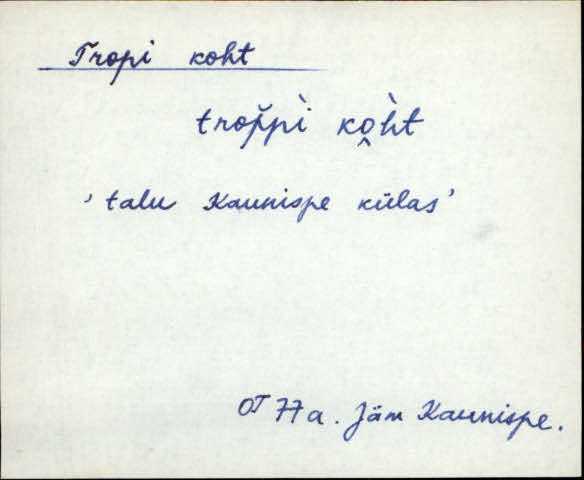 Tropi koht
trop̆pì ko̭h̀t
' talu Kaunispe külas '
OT 77a. Jäm Kaunispe.